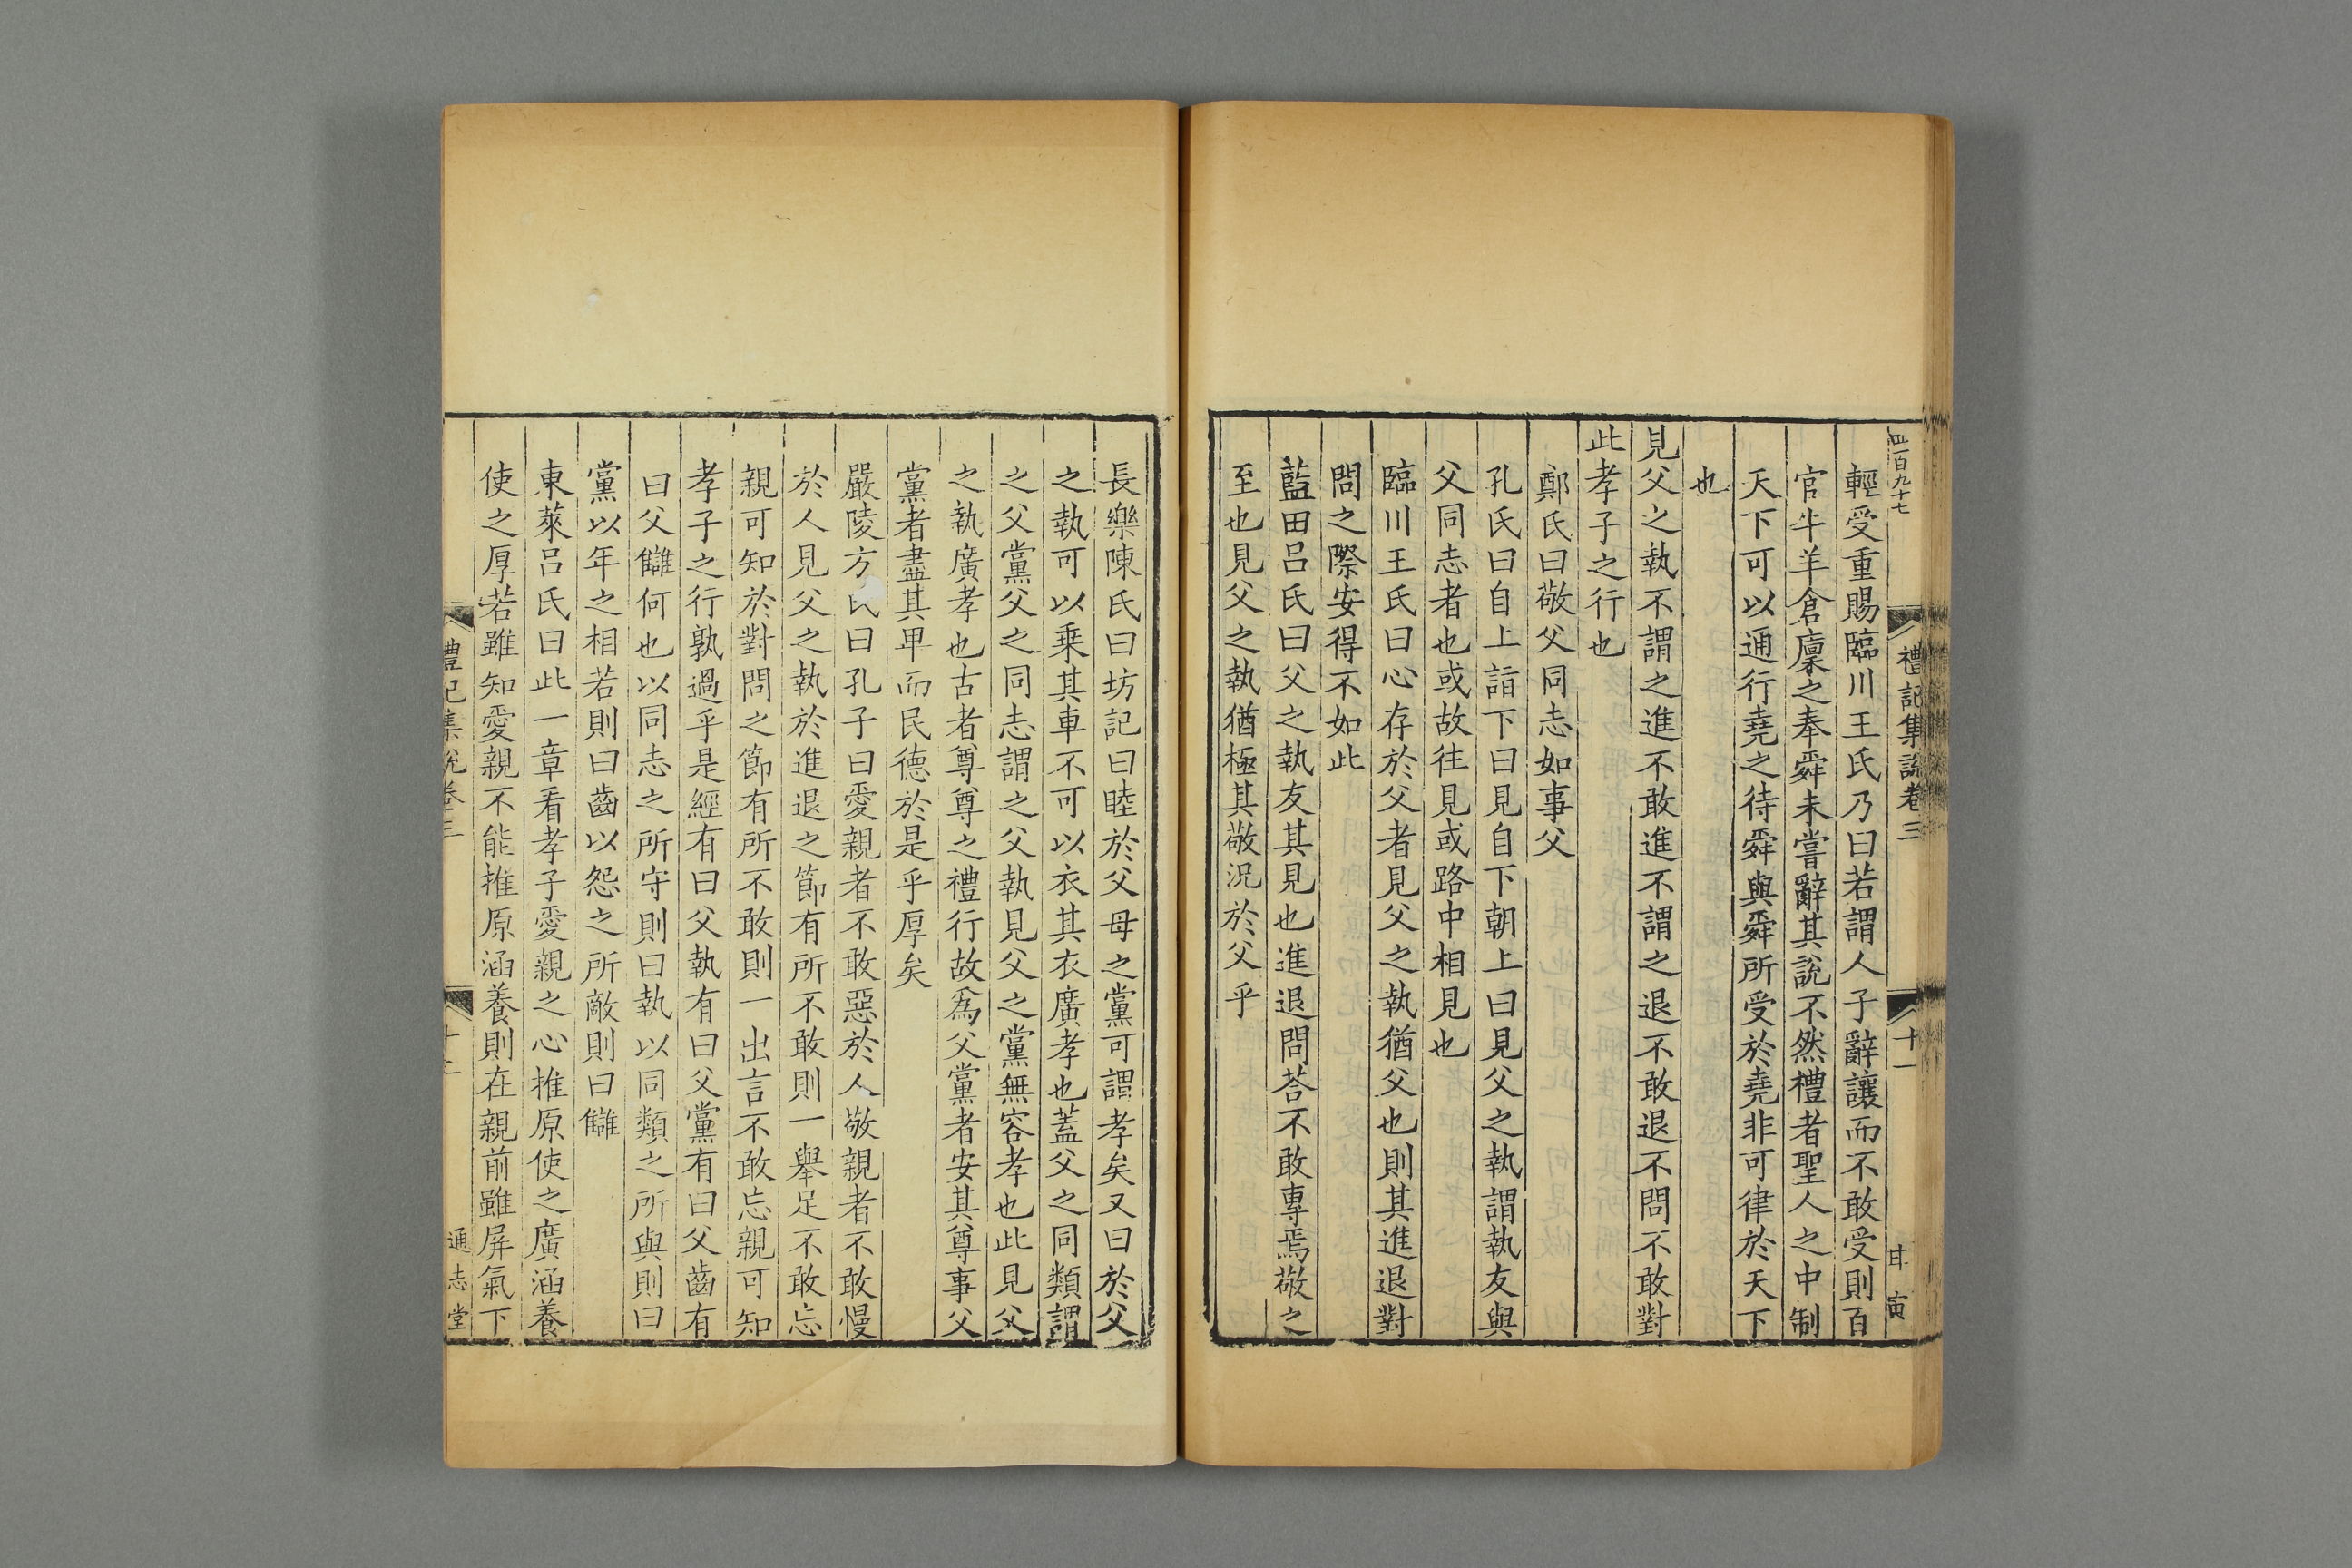 四百九十七
禮記集說卷三
十一
甘寅
輕受重賜臨川王氏乃曰若謂人子辭讓而不敢受則百
官牛羊倉廩之奉舜未嘗辭其說不然禮者聖人之中制
天下可以通行堯之待舜與舜所受於堯非可律於天下
也
見父之執不謂之進不敢進不謂之退不敢退不問不敢對
此孝子之行也
鄭氏曰敬父同志如事父
孔氏曰自上詣下曰見自下朝上曰見父之執謂執友與
父同志者也或故往見或路中相見也
臨川王氏曰心存於父者見父之執猶父也則其進退對
問之際安得不如此
藍田呂氏曰父之執友其見也進退問荅不敢專焉敬之
至也見父之執猶極其敬況於父乎
長樂陳氏曰坊記曰睦於父母之黨可謂孝矣又曰於父
之執可以乘其車不可以衣其衣廣孝也蓋父之同類謂
之父黨父之同志謂之父執見父之黨無容孝也此見父
之執廣孝也古者尊尊之禮行故為父黨者安其尊事父
黨者盡其卑而民德於是乎厚矣
嚴陵方氏曰孔子曰愛親者不敢惡於人敬親者不敢慢
於人見父之執於進退之節有所不敢則一舉足不敢忘
親可知於對問之節有所不敢則一出言不敢忘親可知
孝子之行孰過乎是經有曰父執有曰父黨有曰父齒有
曰父讎何也以同志之所守則曰執以同類之所與則曰
黨以年之相若則曰齒以怨之所敵則曰讎
東萊呂氏曰此一章看孝子愛親之心推原使之廣涵養
使之厚若雖知愛親不能推原涵養則在親前雖屏氣下
禮記集說卷三
十
通志堂